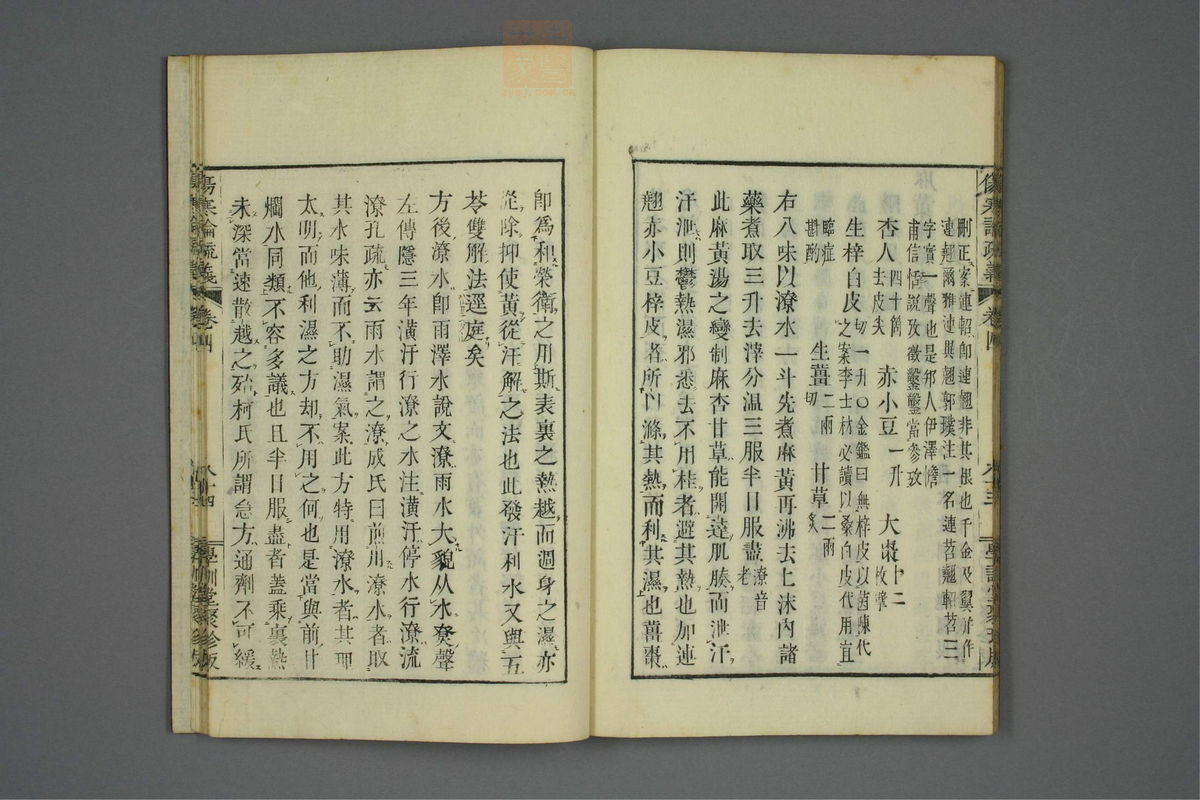 傷寒論疏義 卷四
刪正案連軺卽連翹非其根也千金及翼並作
連翹爾雅連異翹郭璞注一名連苕翹軺苕三
字實一聲也是邦人伊澤憺
甫信恬說攷徵鑿鑿當參攷
杏人四十箇去皮尖 赤小豆一升 大棗十二枚擘
生梓白皮切一升○金鑑曰無梓皮以茵陳代之案李士材必讀以桑白皮代用宜
臨症斟酌 生薑二兩切 甘草二兩炙
右八味以潦水一斗先煮麻黃再沸去上沫內諸
藥煮取三升去滓分溫三服半日服盡潦音老
此麻黃湯之變制麻杏甘草能開達肌腠而泄汗
汗泄則鬱熱濕邪悉去不用桂者避其熱也加連
翹赤小豆梓皮者所以滌其熱而利其濕也薑棗
卽爲和榮衛之用斯表裏之熱越而週身之濕亦
從除抑使黃從汗解之法也此發汗利水又與五
苓雙解法逕庭矣
方後潦水卽雨澤水說文潦雨水大貌从水尞聲
左傳隱三年潢汙行潦之水注潢汙停水行潦流
潦孔疏亦云雨水謂之潦成氏曰煎用潦水者取
其水味薄而不助濕氣案此方特用潦水者其理
太明而他利濕之方却不用之何也是當與前甘
爛水同類不容多議也且半日服盡者蓋乘裏熱
未深當速散越之殆柯氏所謂急方通劑不可緩
傷寒論疏義 卷四 八十四 學訓堂聚珍版